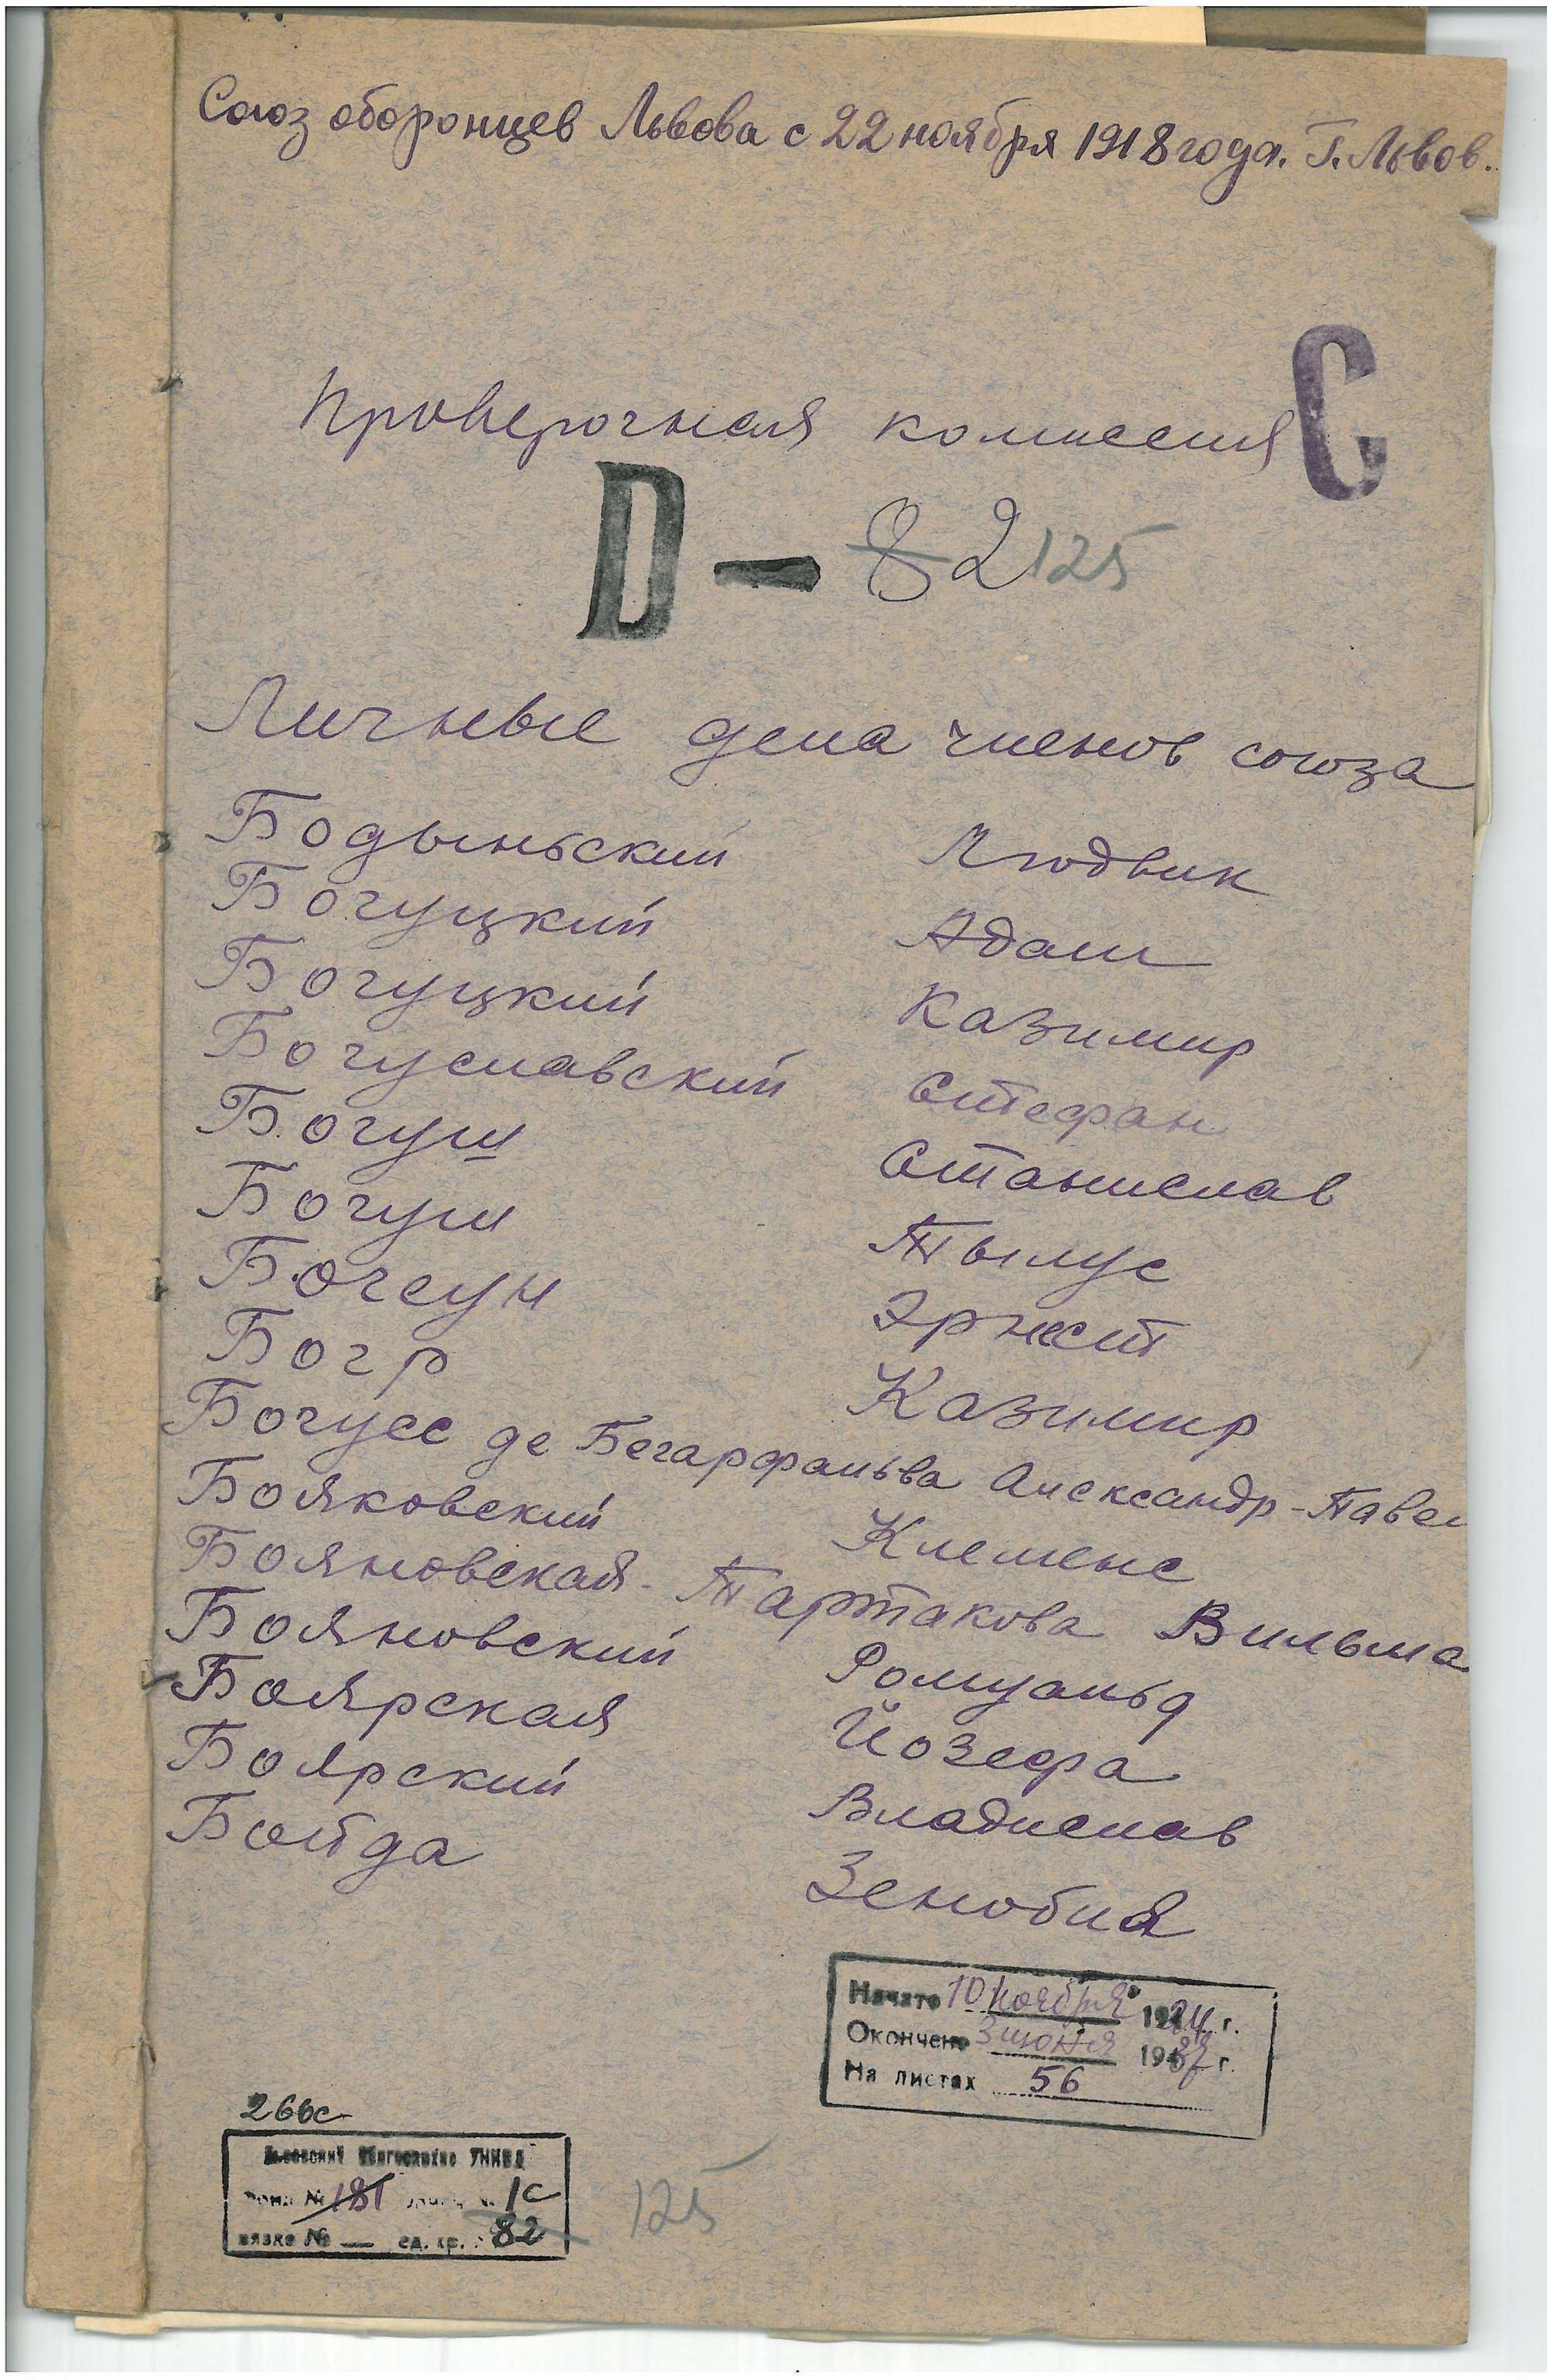 Союз оборонцев Львова с 22 ноября 1918 года. Г. Львов.
С
Проверочная комиссия
D — 82 125
Личные дела членов союза
Бодыньский Людвик
Богуцкий Адам
Богуцкий Казимир
Богуславский Стефан
Богуш Станислав
Богуш Тылус
Богсун Эрнест
Богр Казимир
Богусс де Бегарфальва Александр-Павел
Бояковский Клеменс
Бояновская-Тартакова Вильма
Бояновский Ромуальд
Боярская Йозефа
Боярский Владислав
Бойда Зенобия
Начато 10 ноября 1934 г.
Окончено 3 июня 1937 г.
На листах 56
266с
УНКВД
Фонд № 181 1с
вязка № — ед. хр. 82
125